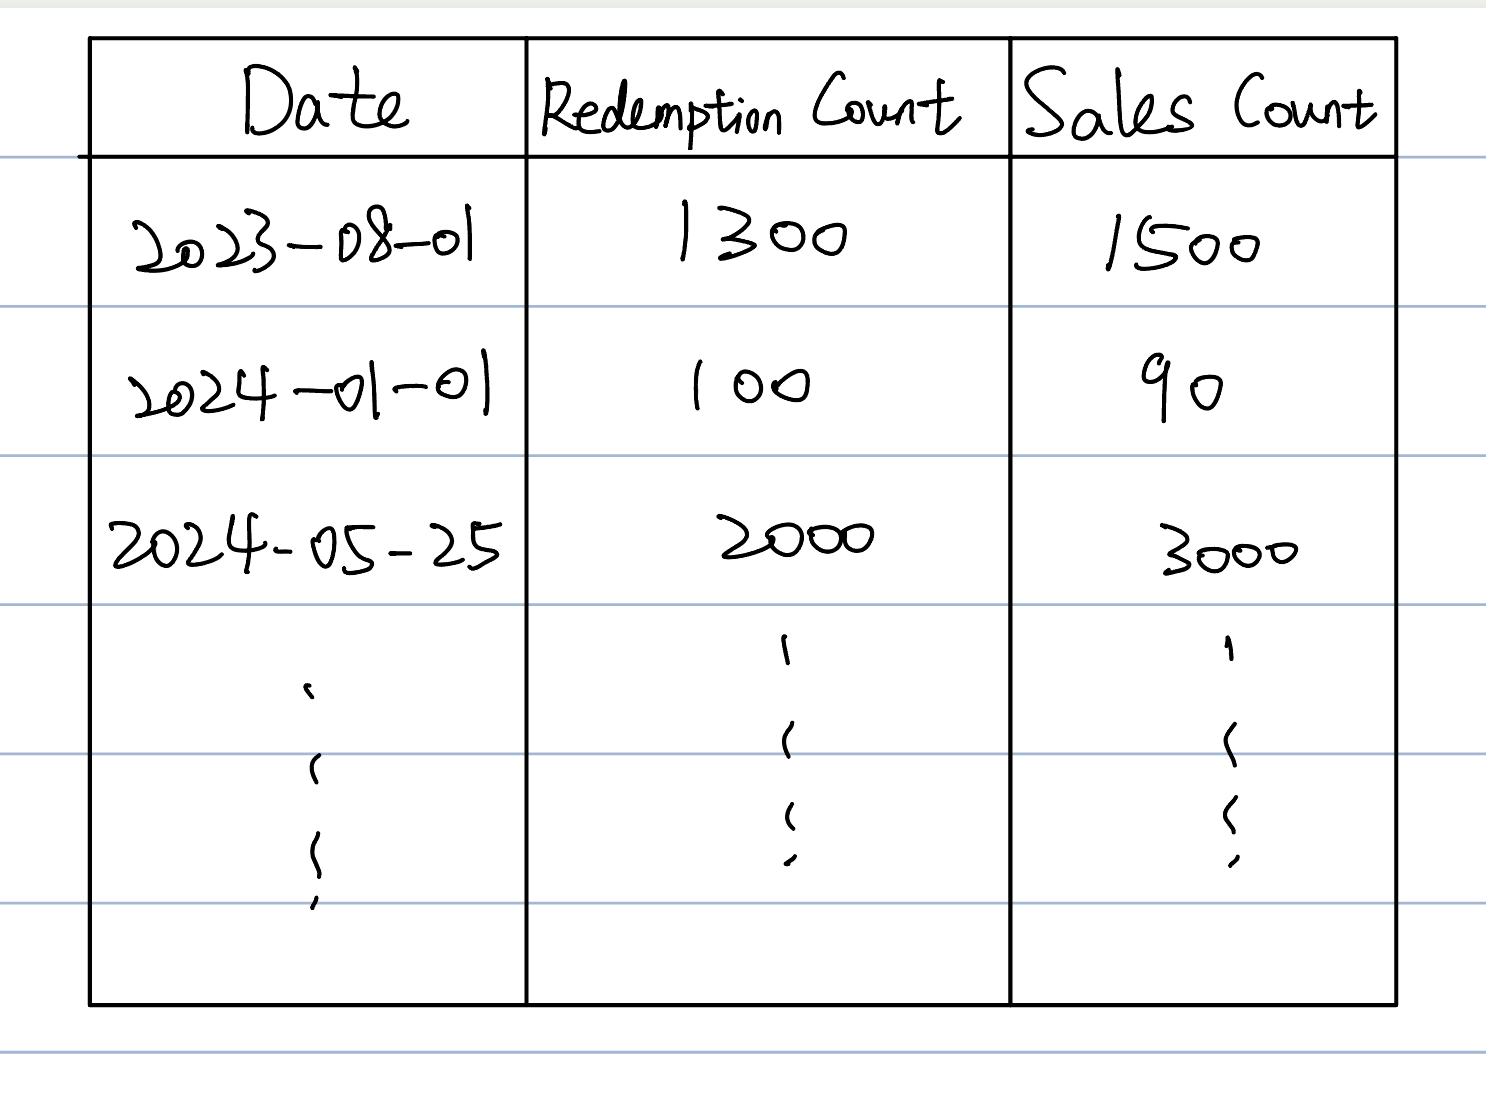 Date Redemption Count Sales Count
2023-08-01 1300 1500
2024-01-01 100 90
2024-05-25 2000 3000